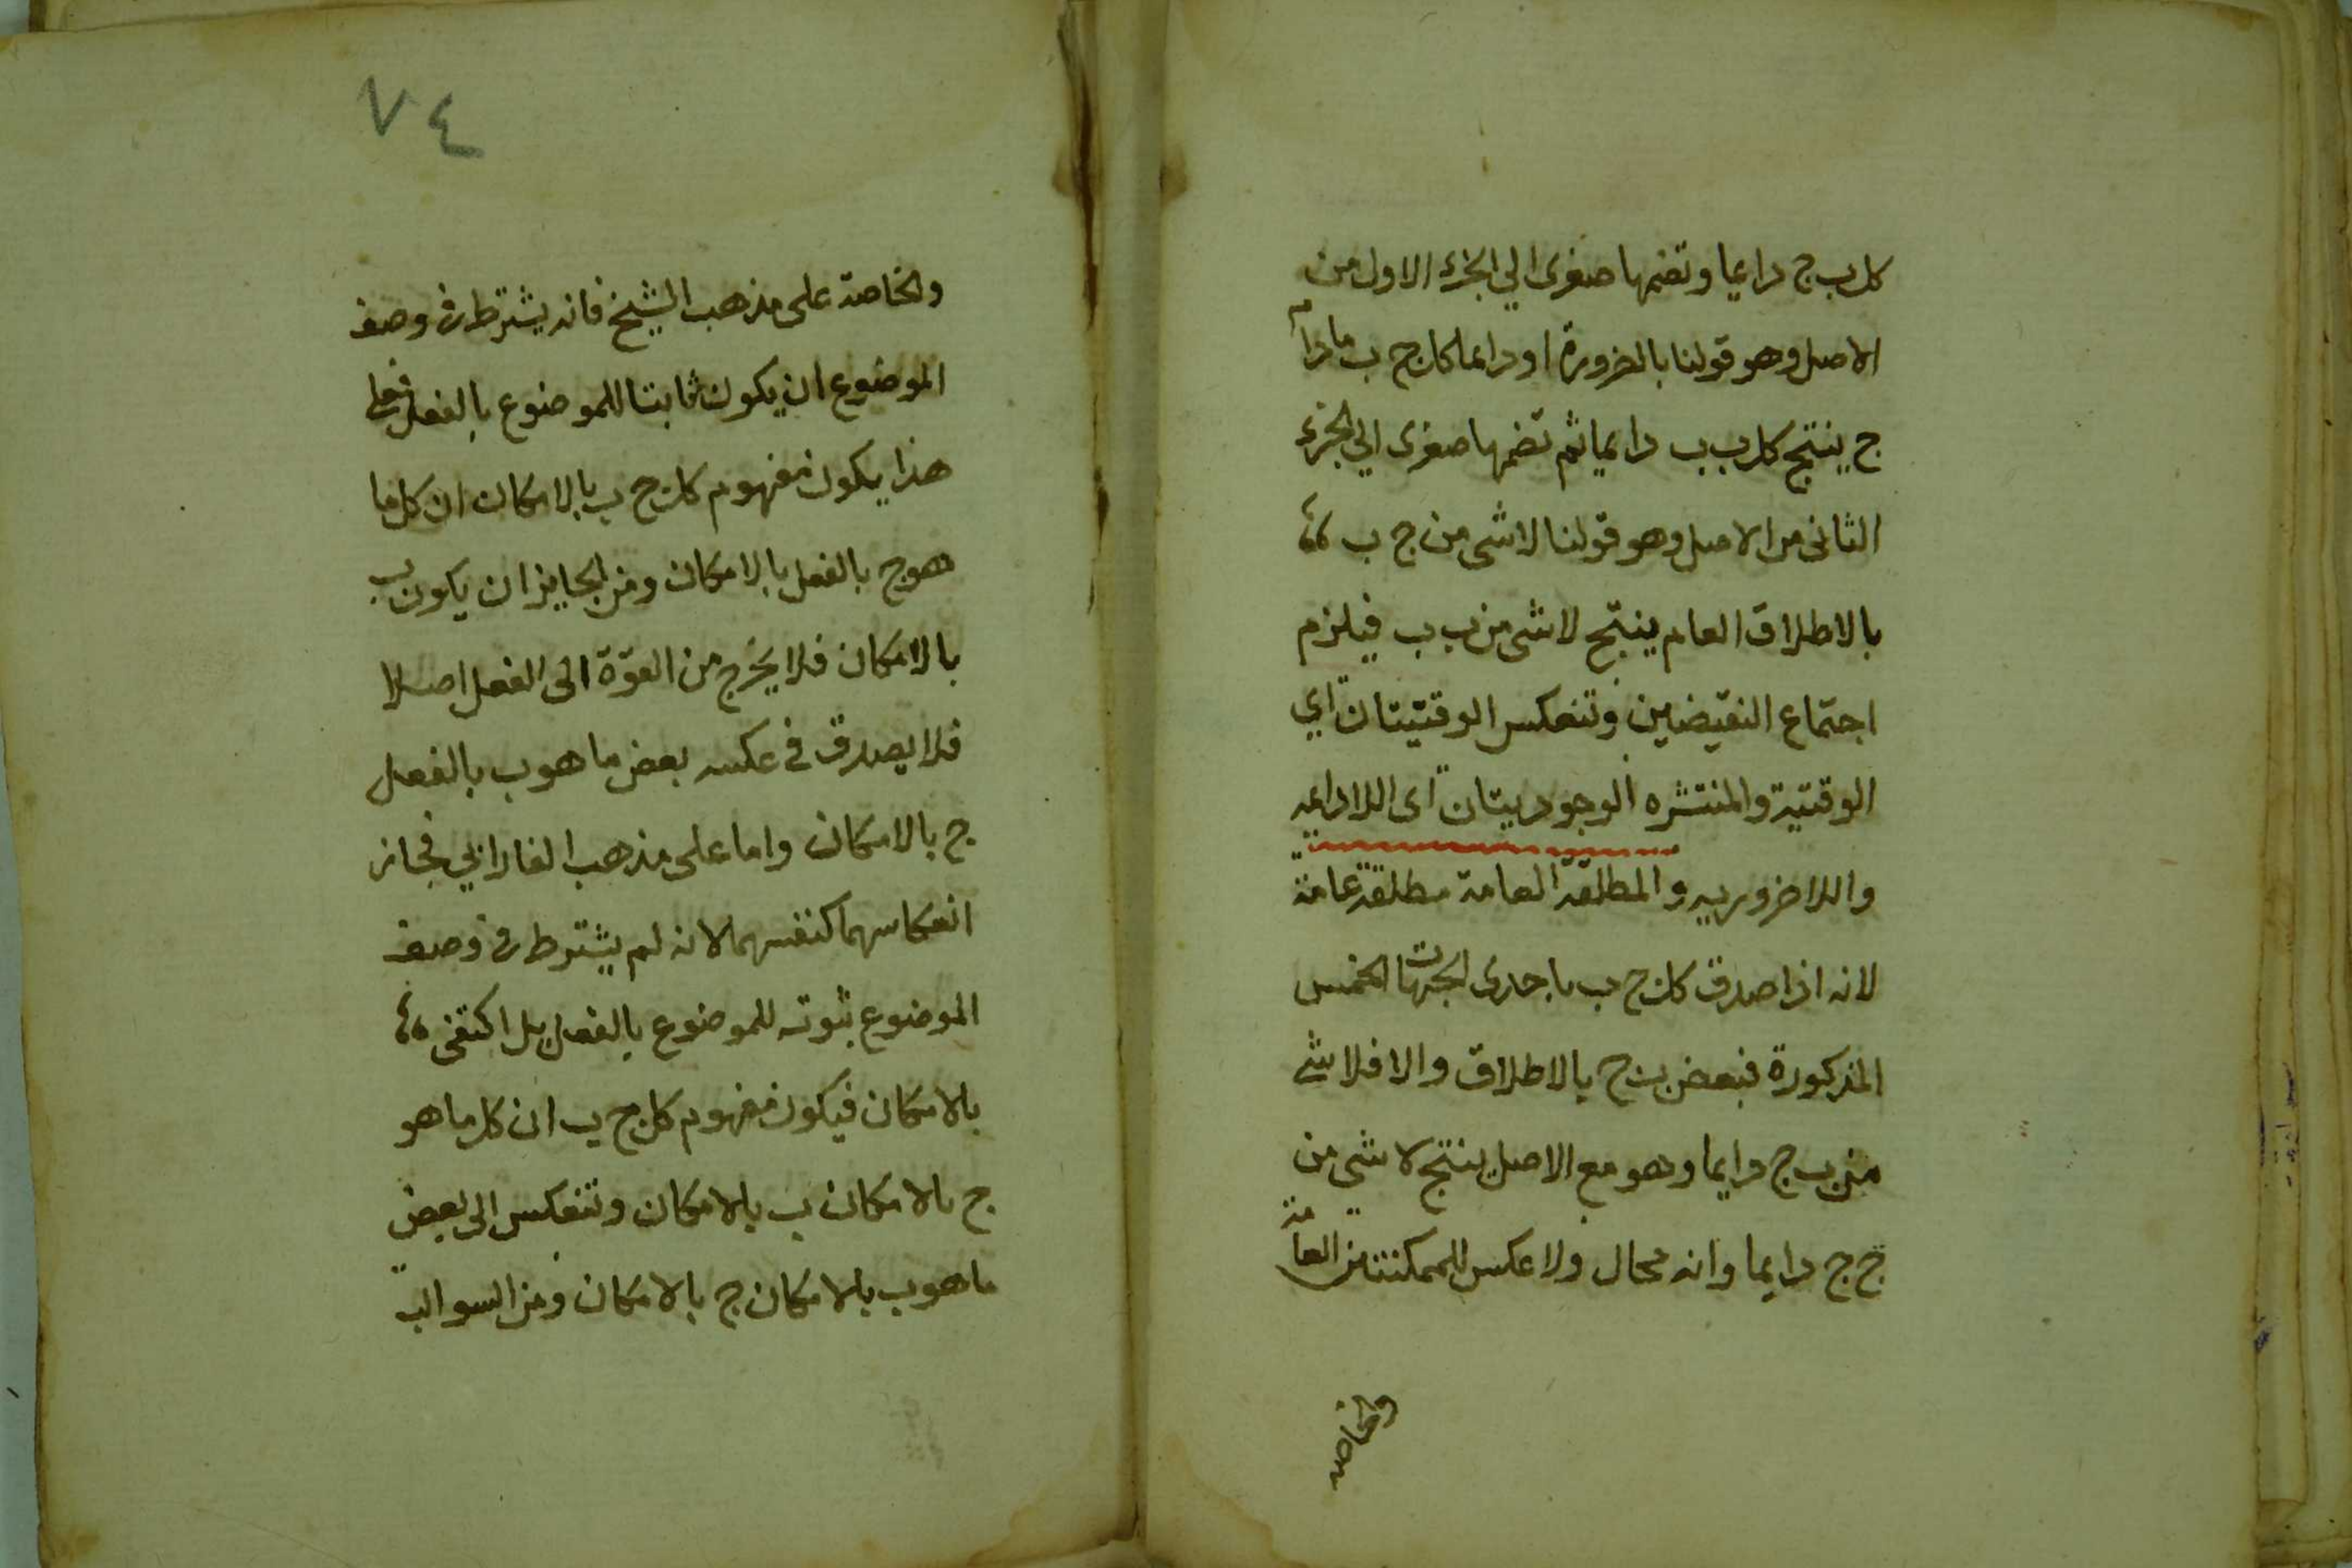 كل ب ج دايما وتضمها صغرى الي الجزء الاول من
الاصل وهو قولنا بالضرورة او دايما كل ج ب مادام
ج ينتج كل ب ب دايما ثم تضمها صغرى الي الجزء
الثانى من الاصل وهو قولنا لا شى من ج ب
بالاطلاق العام ينتج لا شى من ب ب فيلزم
اجتماع النقيضين وتنعكس الوقتيتان اي
الوقتية والمنتشره الوجوديتان اى اللادايمه
واللاضروريه والمطلقة العامة مطلقة عامة
لانه اذا صدق كل ج ب باحدى الجهات الخمس
المذكورة فبعض ب ج بالاطلاق والا فلا شي
من ب ج دايما وهو مع الاصل ينتج لا شي من
ج ج دايما وانه محال ولا عكس للممكنتين العامة
والخاصه
٧٤
والخاصة على مذهب الشيخ فانه يشترط فى وصف
الموضوع ان يكون ثابتا للموضوع بالفعل فعلى
هذا يكون مفهوم كل ج ب بالامكان ان كل ما
هو ج بالفعل ب بالامكان ومن الجايز ان يكون ب
بالامكان فلا يخرج من القوة الى الفعل اصلا
فلا يصدق في عكسه بعض ما هو ب بالفعل
ج بالامكان واما على مذهب الفارابي فجاز
انعكاسهما كنفسهما لانه لم يشترط فى وصف
الموضوع ثبوته للموضوع بالفعل بل اكتفى
بالامكان فيكون مفهوم كل ج ب ان كل ما هو
ج بالامكان ب بالامكان وتنعكس الى بعض
ما هو ب بالامكان ج بالامكان ومن السوالب